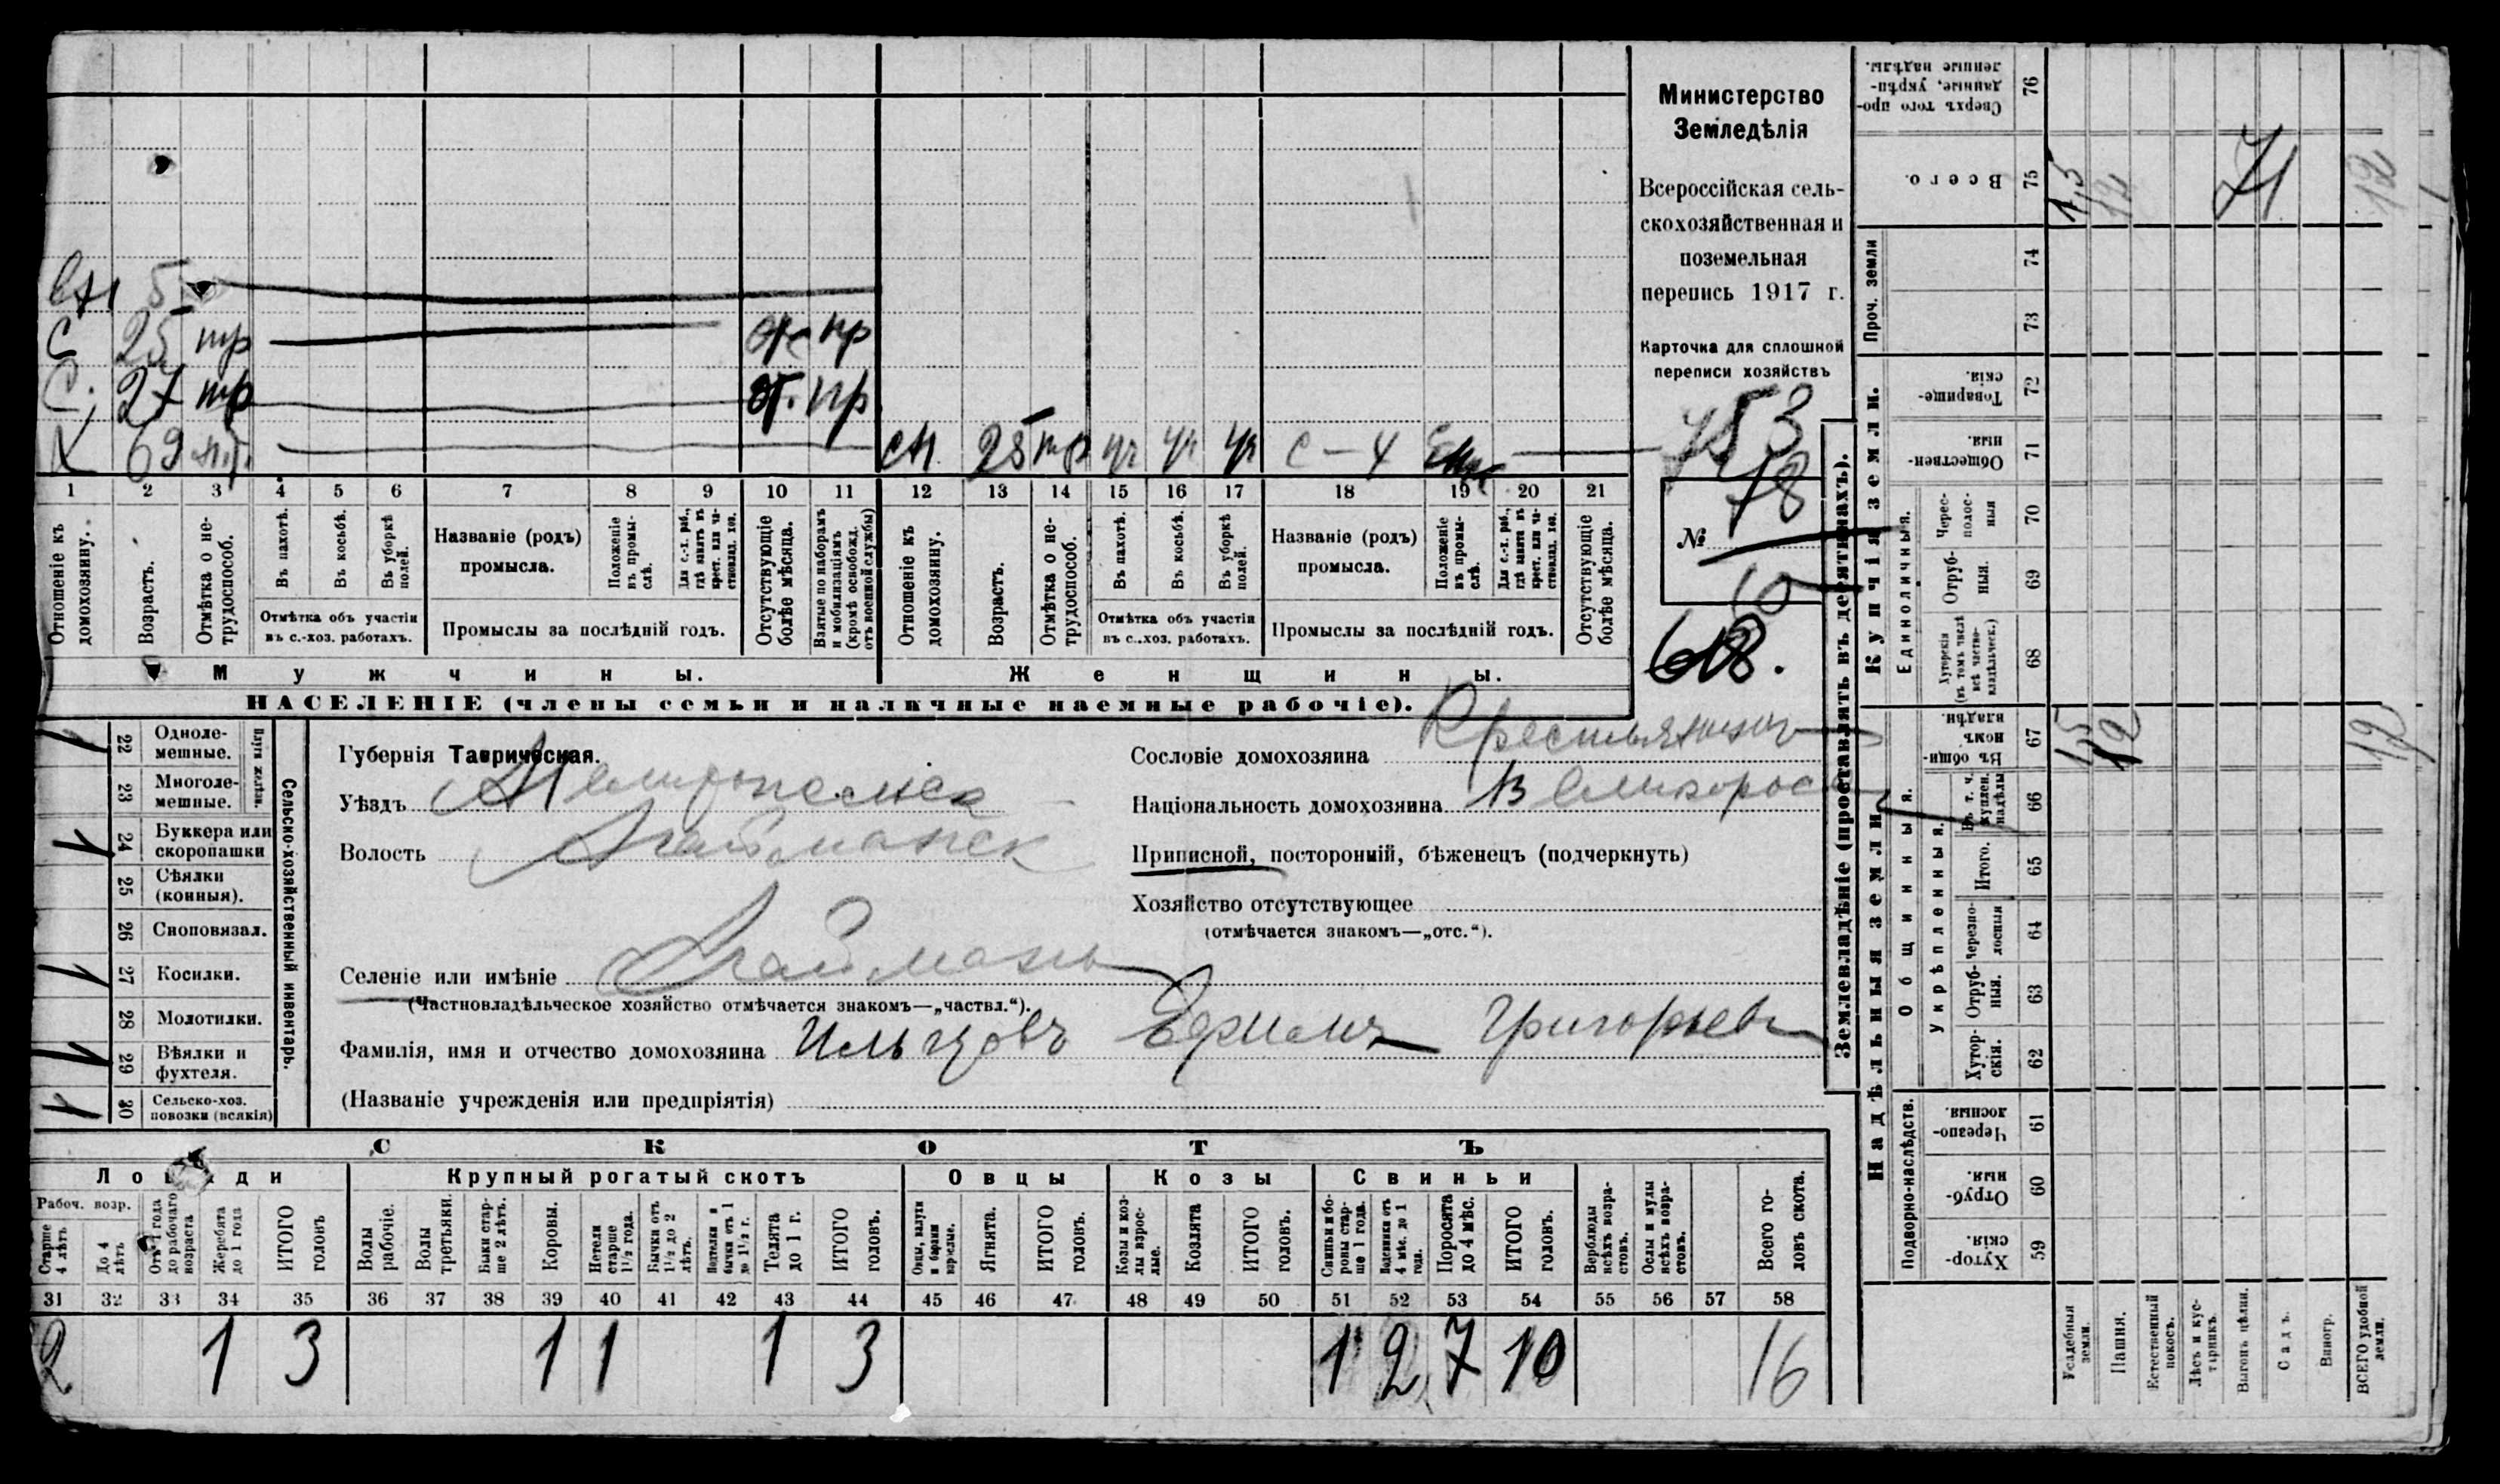 Министерство
Земледѣлія
Всероссійская сель-
скохозяйственная и
поземельная
перепись 1917 г.
Карточка для сплошной
переписи хозяйствъ
753
78
№
60
618.
вн 5
С 25 тр от пр
С. 27 тр от. пр
Х 69 п.т.
сн. 25 тр уч уч уч
1 2 3 4 5 6 7 8 9 10 11 12 13 14 15 16 17 18 19 20 21
Отношеніе къ домохозяину.
Возрастъ.
Отмѣтка о не-трудоспособ.
Въ пахотѣ.
Въ косьбѣ.
Въ уборкѣ полей.
Отмѣтка объ участіи въ с.-хоз. работахъ.
Названіе (родъ) промысла.
Положеніе въ промы-слѣ.
Для с.-х. раб., гдѣ занятъ въ крест. или ча-стновлад. хоз.
Промыслы за послѣдній годъ.
Отсутствующіе болѣе мѣсяца.
Взятые по наборамъ и мобилизаціямъ (кромѣ освобожд. отъ военной службы)
Отношеніе къ домохозяину.
Возрастъ.
Отмѣтка о не-трудоспособ.
Въ пахотѣ.
Въ косьбѣ.
Въ уборкѣ полей.
Отмѣтка объ участіи въ с.-хоз. работахъ.
Названіе (родъ) промысла.
Положеніе въ промы-слѣ.
Для с.-х. раб., гдѣ занята въ крест. или ча-стновлад. хоз.
Промыслы за послѣдній годъ.
Отсутствующіе болѣе мѣсяца.
Мужчины.
Женщины.
НАСЕЛЕНІЕ (члены семьи и наличные наемные рабочіе).
22 Одноле-мешные. 1
23 Многоле-мешные.
Плуги желѣзн.
24 Буккера или скоропашки 1
25 Сѣялки (конныя).
26 Сноповязал.
27 Косилки. 1
28 Молотилки.
29 Вѣялки и фухтеля. 1
30 Сельско-хоз. повозки (всякія) 1
Сельско-хозяйственный инвентарь.
Губернія Таврическая.
Уѣздъ Мелитопольск
Волость Агайманск
Селеніе или имѣніе Агайманъ
(Частновладѣльческое хозяйство отмѣчается знакомъ—„частвл.“).
Фамилія, имя и отчество домохозяина Ильцовъ Ефимъ Григорьевъ
(Названіе учрежденія или предпріятія)
Сословіе домохозяина Крестьянинъ
Національность домохозяина Великорос
Приписной, посторонній, бѣженецъ (подчеркнуть)
Хозяйство отсутствующее
(отмѣчается знакомъ—„отс.“).
СКОТЪ
Лошади
Крупный рогатый скотъ
Овцы
Козы
Свиньи
Рабоч. возр.
Старше 4 лѣтъ
До 4 лѣтъ
Отъ 1 года до рабочаго возраста
Жеребята до 1 года
ИТОГО головъ
Волы рабочіе.
Волы третьяки.
Быки стар-ше 2 лѣтъ.
Коровы.
Нетели старше 1½ года.
Бычки отъ 1½ до 2 лѣтъ.
Подтелки и бычки отъ 1 до 1½ г.
Телята до 1 г.
ИТОГО головъ.
Овцы, валухи и бараны взрослые.
Ягнята.
ИТОГО головъ.
Козы и коз-лы взрос-лые.
Козлята
ИТОГО головъ.
Свиньи и бо-ровы стар-ше 1 года.
Подсвинки отъ 4 мѣс. до 1 года.
Поросята до 4 мѣс.
ИТОГО головъ.
Верблюды всѣхъ возра-стовъ.
Ослы и мулы всѣхъ возра-стовъ.
Всего го-ловъ скота.
31 32 33 34 35 36 37 38 39 40 41 42 43 44 45 46 47 48 49 50 51 52 53 54 55 56 57 58
2 1 3 1 1 1 3 1 2 7 10 16
Землевладѣніе (проставлять въ десятинахъ).
Надѣльныя земли.
Купчія земли.
Проч. земли
Подворно-наслѣдств.
Общинныя.
Укрѣпленныя.
Единоличныя.
59 Хутор-скія.
60 Отруб-ныя.
61 Черезпо-лосныя.
62 Хутор-скія.
63 Отруб-ныя.
64 Черезпо-лосныя
65 Итого.
66 Въ т. ч. куплен. надѣлы
67 Въ общин-номъ владѣн.
68 Хуторскія (въ томъ числѣ всѣ частно-владѣльческ.)
69 Отруб-ныя.
70 Черес-полос-ныя
71 Обществен-ныя.
72 Товарище-скія.
73
74
75 Всего.
76 Сверхъ того про-данные, укрѣп-ленные надѣлы.
1,5 12 12
1,5 12 71 12
Усадебныя земли.
Пашня.
Естественный покосъ.
Лѣсъ и кус-тарникъ.
Выгонъ цѣлин.
Садъ.
Виногр.
ВСЕГО удобной земли.